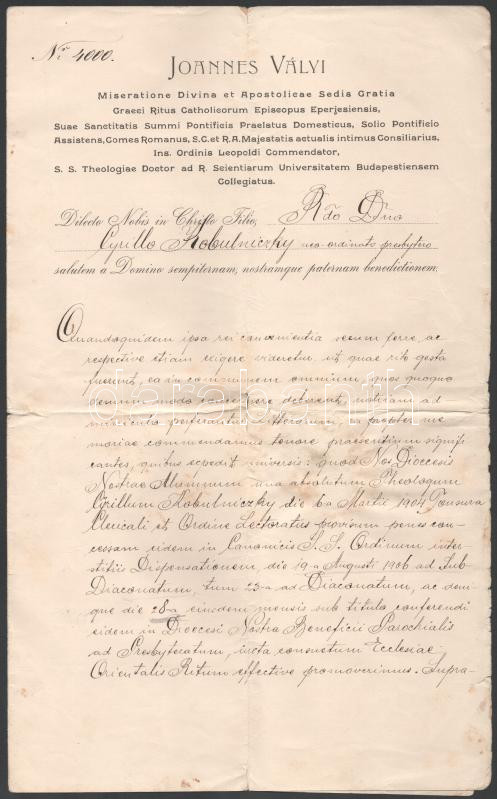 Nr. 4000.
JOANNES VÁLYI
Miseratione Divina et Apostolicae Sedis Gratia
Graeci Ritus Catholicorum Episcopus Eperjesiensis,
Suae Sanctitatis Summi Pontificis Praelatus Domesticus, Solio Pontificio
Assistens, Comes Romanus, S. C. et R. A. Majestatis actualis intimus Consiliarius,
Ins. Ordinis Leopoldi Commendator,
S. S. Theologiae Doctor ad R. Scientiarum Universitatem Budapestiensem
Collegiatus.
Dilecto Nobis in Christo Filio, Rdo Dno
Cyrillo Kobulniczky neo-ordinato presbytero
salutem a Domino sempiternam, nostramque paternam benedictionem.
Quandoquidem ipsa rei convenientia secum ferre, ac
respective etiam exigere videretur, ut quae rite gesta
fuerunt, ea in communem omnium, quos quoquo
demum modo tangere deberent, notitiam ad
, propter me
moriae commendamus tenore praesentium signifi
cantes, quibus expedit universis: quod Nos Dioecesis
Nostrae Alumnum una absolutum Theologum
Cyrillum Kobulniczky die 6-a Martii 1904 Tonsura
Clericali et Ordine Lectoratus provisum penes con-
cessam eidem in Canonicis S. S. Ordinum inter-
stitiis Dispensationem, die 19-a Augusti 1906 ad Sub
Diaconatum, tum 23-a ad Diaconatum, ac deni-
que die 28-a eiusdem mensis sub titulo conferendi
eidem in Dioecesi Nostra Beneficii Parochialis
ad Presbyteratum, iuxta consuetum Ecclesiae
Orientalis Ritum effective promoverimus. Supra-
darabanth